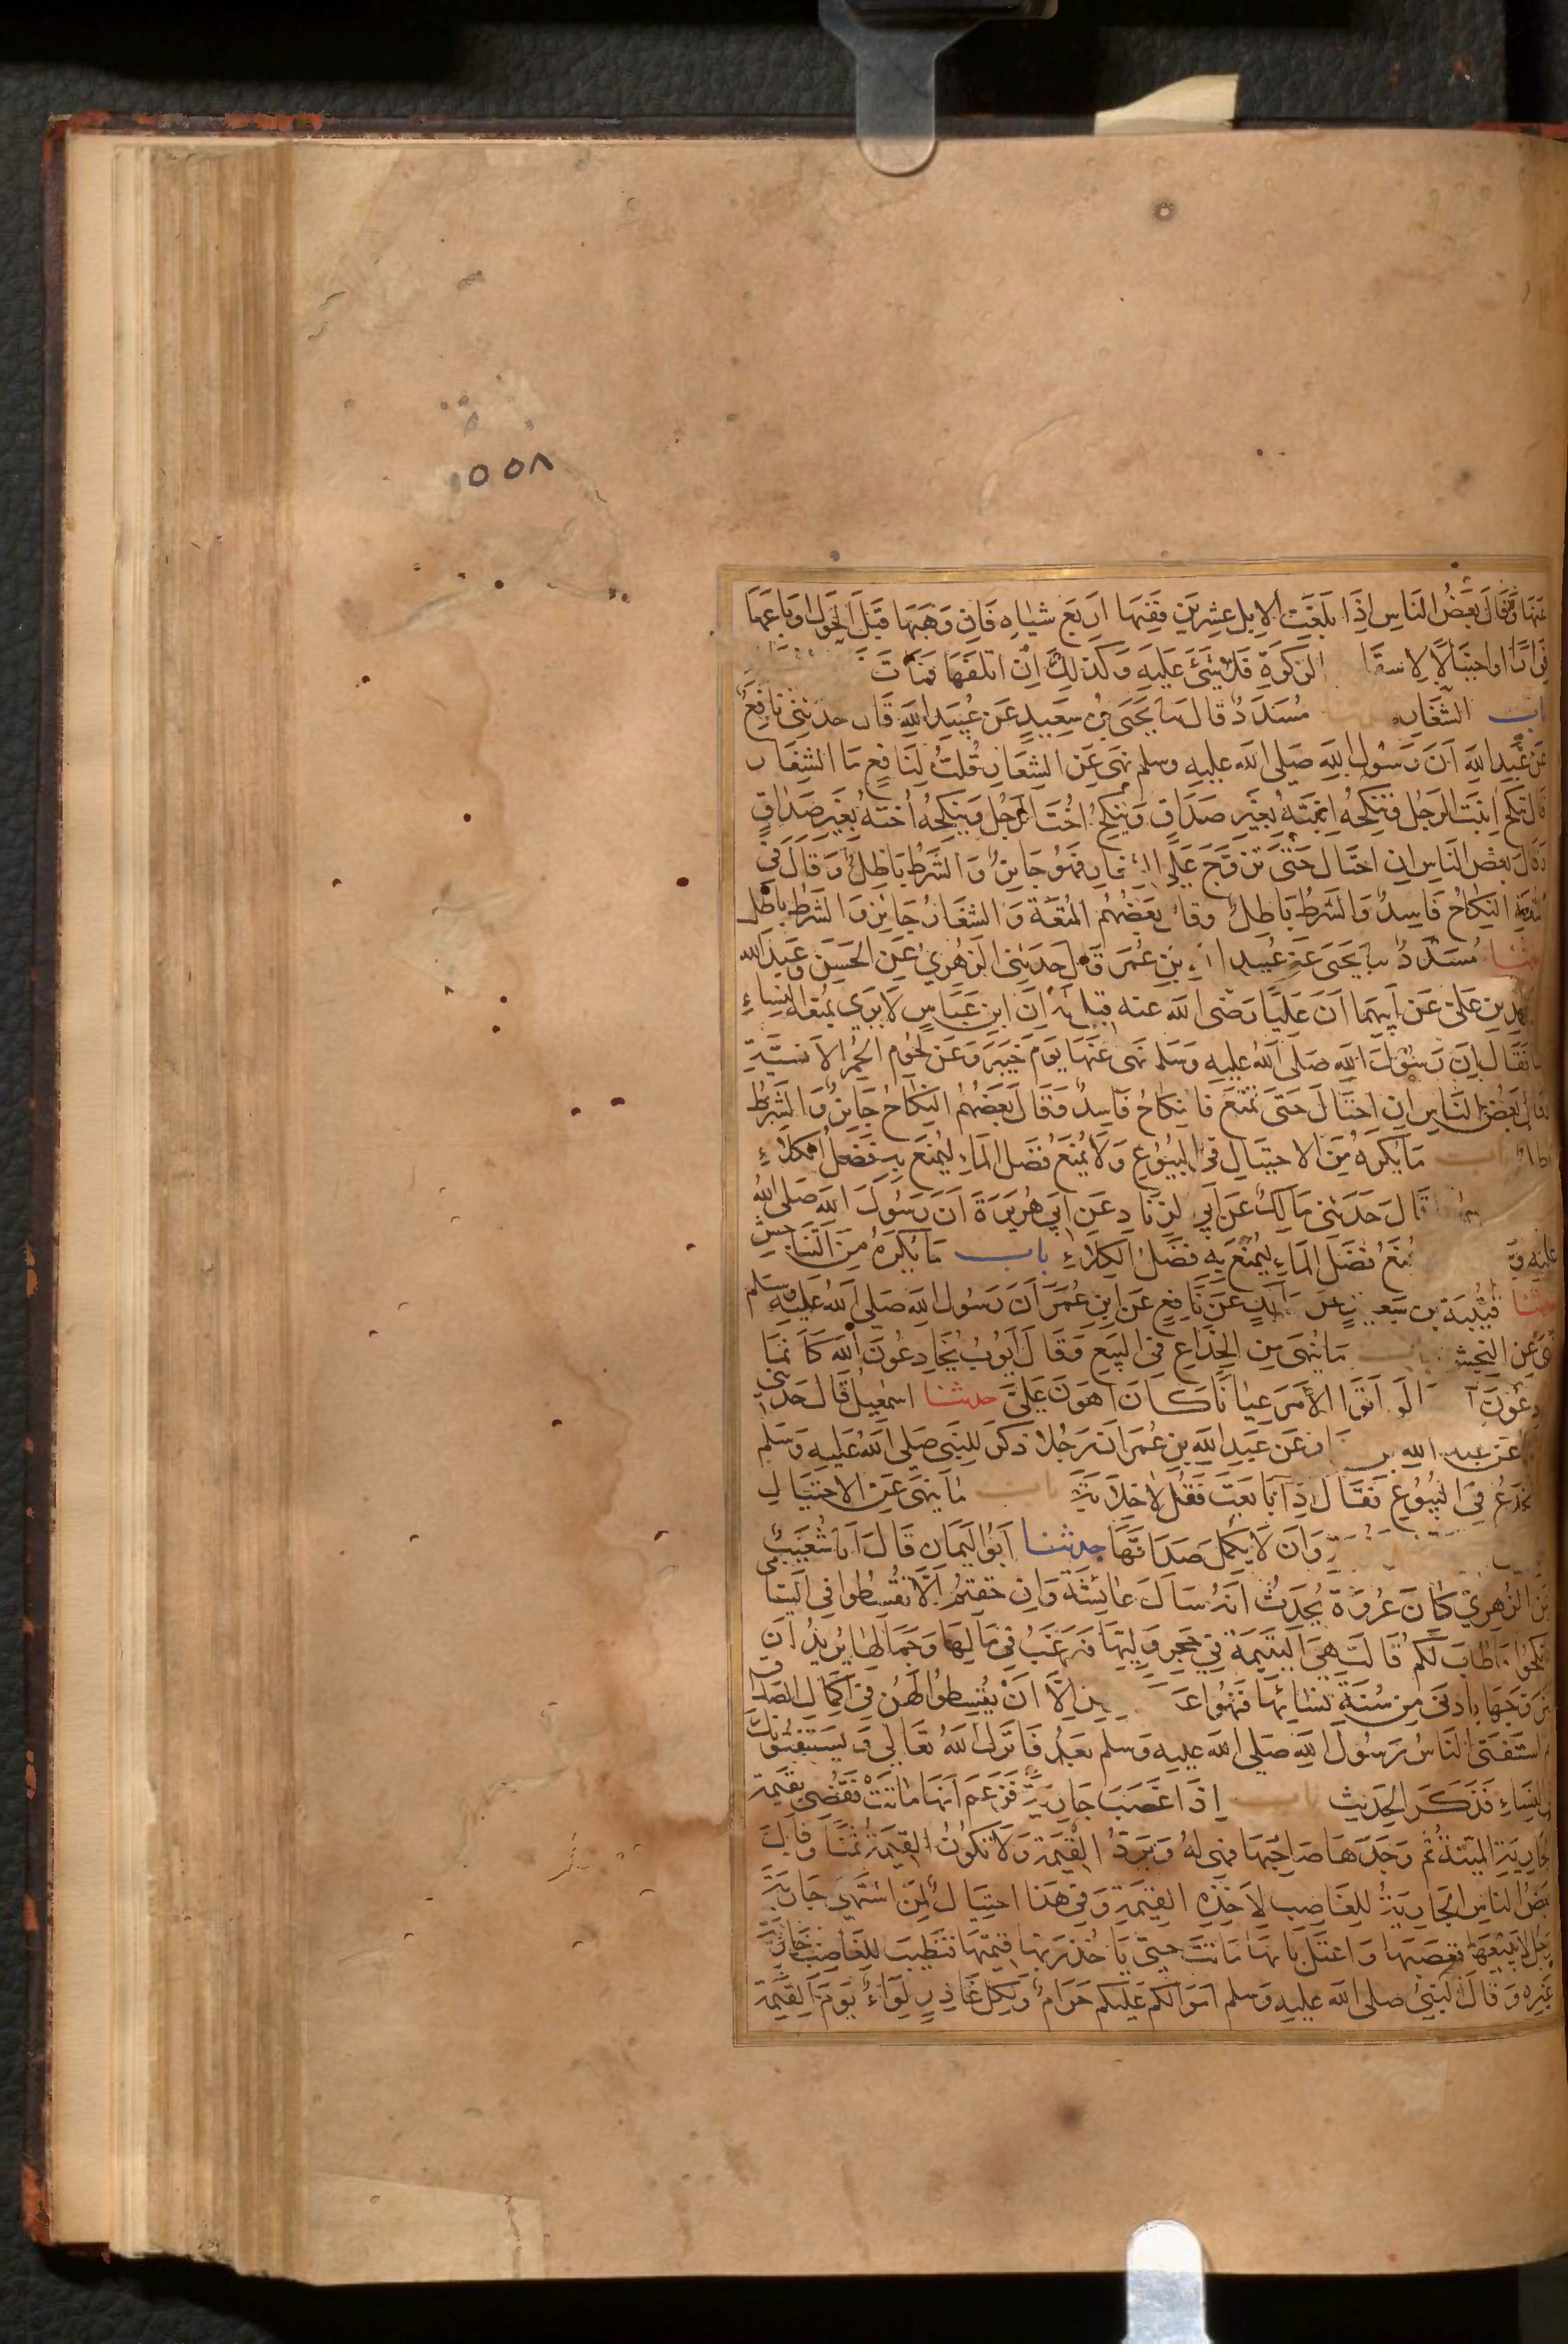 ٥٥٨
عنها وقال بعض الناس اذا بلغت الابل عشرين ففيها اربع شياه فان وهبها قبل الحول او باعها
فرارا او احتيالا لاسقا الزكوة فلا شئ عليه وكذلك ان اتلفها فمات
باب الشغار مسدد قال ثنا يحيى بن سعيد عن عبيد الله قال حدثني نافع
عن عبد الله ان رسول الله صلى الله عليه وسلم نهى عن الشغار قلت لنافع ما الشغار
قال ينكح ابنت الرجل فينكحه ابنته بغير صداق وينكح اخت الرجل وينكحه اخته بغير صداق
وقال بعض الناس ان احتال حتى تزوج على الشغار فهو جائز والشرط باطل وقال في
المتعة النكاح فاسد والشرط باطل وقال بعضهم المتعة والشغار جائز والشرط باطل
حدثنا مسدد ثنا يحيى عن عبيد الله بن عمر قال حدثني الزهري عن الحسن وعبد الله
محمد بن على عن ابيهما ان عليا رضى الله عنه قيل له ان ابن عباس لا يرى بمتعة النساء
باسا فقال ان رسول الله صلى الله عليه وسلم نهى عنها يوم خيبر وعن لحوم الحمر الانسية
وقال بعض الناس ان احتال حتى تمتع فالنكاح فاسد وقال بعضهم النكاح جائز والشرط
باطل باب ما يكره من الاحتيال في البيوع ولا يمنع فضل الماء ليمنع به فضل الكلاء
قال حدثني مالك عن ابي الزناد عن ابي هريرة ان رسول الله صلى الله
عليه و يمنع فضل الماء ليمنع به فضل الكلاء باب ما يكره من التناجش
حدثنا قتيبة بن سعيد عن مالك عن نافع عن ابن عمر ان رسول الله صلى الله عليه وسلم
نهى عن النجش باب ما ينهى من الخداع في البيع وقال ايوب يخادعون الله كانما
يخادعون آ لو اتوا الامر عيانا كان اهون على حدثنا اسمعيل قال حدثني
عن عبد الله بن عن عبد الله بن عمر ان رجلا ذكر للنبى صلى الله عليه وسلم
يخدع في البيوع فقال اذا بايعت فقل لا خلابة باب ما ينهى عن الاحتيال
وان لا يكمل صداقها حدثنا ابو اليمان قال انا شعيب
عن الزهري كان عروة يحدث انه سال عائشة وان خفتم الا تقسطوا في اليتامى
فانكحوا ما طاب لكم قالت هي اليتيمة في حجر وليها فيرغب في مالها وجمالها يريد ان
يتزوجها بادنى من سنة نسائها فنهوا عن الا ان يقسطوا لهن في اكمال الصداق
ثم استفتى الناس رسول الله صلى الله عليه وسلم بعد فانزل الله تعالى ويستفتونك
في النساء فذكر الحديث باب اذا غصب جارية فزعم انها ماتت فقضي بقيمة
الجارية الميتة ثم وجدها صاحبها فهي له وترد القيمة ولا تكون القيمة ثمنا وقال
بعض الناس الجارية للغاصب لاخذه القيمة وفي هذا احتيال لمن اشتهى جارية
رجل لا يبيعها فغصبها واعتل بانها ماتت حتى ياخذ ربها قيمتها فتطيب للغاصب جارية
غيره وقال النبي صلى الله عليه وسلم اموالكم عليكم حرام ولكل غادر لواء يوم القيمة